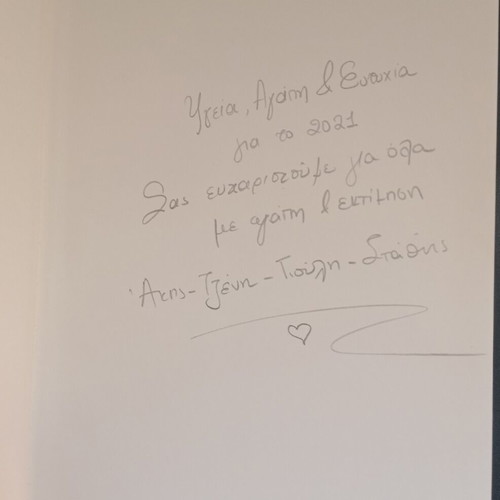 Υγεία, Αγάπη & Ευτυχία
για το 2021
Σας ευχαριστούμε για όλα
με αγάπη & εκτίμηση
Άκης - Τζένη - Γιούλη - Στάθης